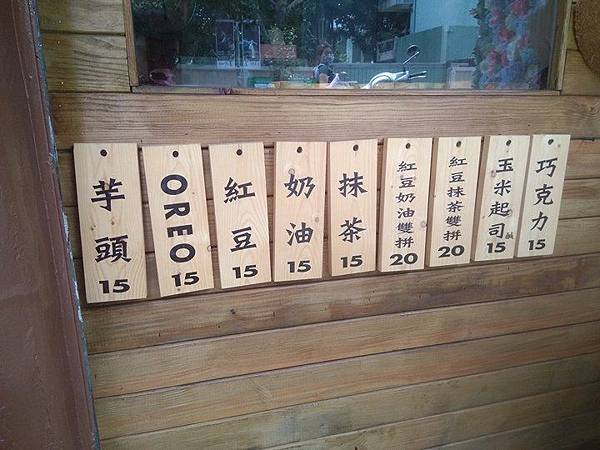 芋頭
15
OREO
15
紅豆
15
奶油
15
抹茶
15
紅豆奶油雙拼
20
紅豆抹茶雙拼
20
玉米起司
鹹
15
巧克力
15